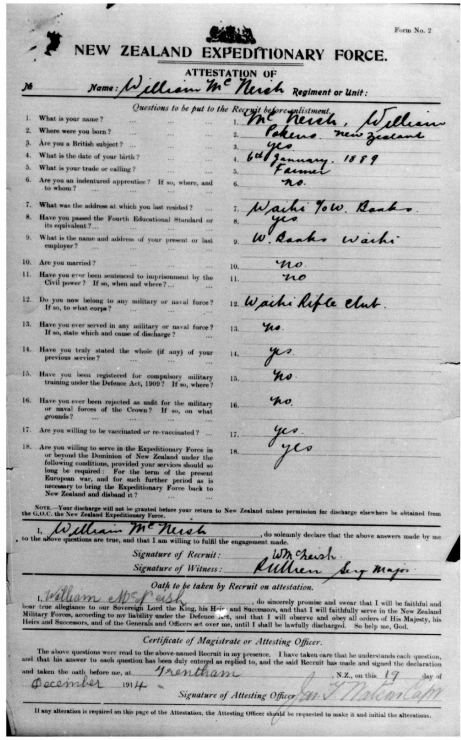 Form No. 2
NEW ZEALAND EXPEDITIONARY FORCE.
ATTESTATION OF
No Name: William McNeish Regiment or Unit:
Questions to be put to the Recruit before enlistment.
1. What is your name? 1. McNeish, William
2. Where were you born? 2. New Zealand
3. Are you a British subject? 3. yes
4. What is the date of your birth? 4. 6th January, 1889
5. What is your trade or calling? 5. Farmer
6. Are you an indentured apprentice? If so, where, and 6. no.
to whom?
7. What was the address at which you last resided? 7. Waihi c/o W. Banks.
8. Have you passed the Fourth Educational Standard or 8. yes
its equivalent?
9. What is the name and address of your present or last 9. W. Banks Waihi
employer?
10. Are you married? 10. no
11. Have you ever been sentenced to imprisonment by the 11. no
Civil power? If so, when and where?
12. Do you now belong to any military or naval force? 12. Waihi Rifle Club.
If so, to what corps?
13. Have you ever served in any military or naval force? 13. no.
If so, state which and cause of discharge?
14. Have you truly stated the whole (if any) of your 14. yes
previous service?
15. Have you been registered for compulsory military 15. no
training under the Defence Act, 1909? If so, where?
16. Have you ever been rejected as unfit for the military 16. no
or naval forces of the Crown? If so, on what
grounds?
17. Are you willing to be vaccinated or re-vaccinated? 17. yes.
18. Are you willing to serve in the Expeditionary Force in 18. yes
or beyond the Dominion of New Zealand under the
following conditions, provided your services should so
long be required: For the term of the present
European war, and for such further period as is
necessary to bring the Expeditionary Force back to
New Zealand and disband it?
NOTE.—Your discharge will not be granted before your return to New Zealand unless permission for discharge elsewhere be obtained from
the G.O.C. the New Zealand Expeditionary Force.
I, William McNeish, do solemnly declare that the above answers made by me
to the above questions are true, and that I am willing to fulfil the engagement made.
Signature of Recruit: W McNeish
Signature of Witness: Serg Major
Oath to be taken by Recruit on attestation.
I, William McNeish, do sincerely promise and swear that I will be faithful and
bear true allegiance to our Sovereign Lord the King, his Heirs and Successors, and that I will faithfully serve in the New Zealand
Military Forces, according to my liability under the Defence Act, and that I will observe and obey all orders of His Majesty, his
Heirs and Successors, and of the Generals and Officers set over me, until I shall be lawfully discharged. So help me, God.
Certificate of Magistrate or Attesting Officer.
The above questions were read to the above-named Recruit in my presence. I have taken care that he understands each question,
and that his answer to each question has been duly entered as replied to, and the said Recruit has made and signed the declaration
and taken the oath before me, at Trentham N.Z., on this 19 day of
December 1914
Signature of Attesting Officer
If any alteration is required on this page of the Attestation, the Attesting Officer should be requested to make it and initial the alterations.